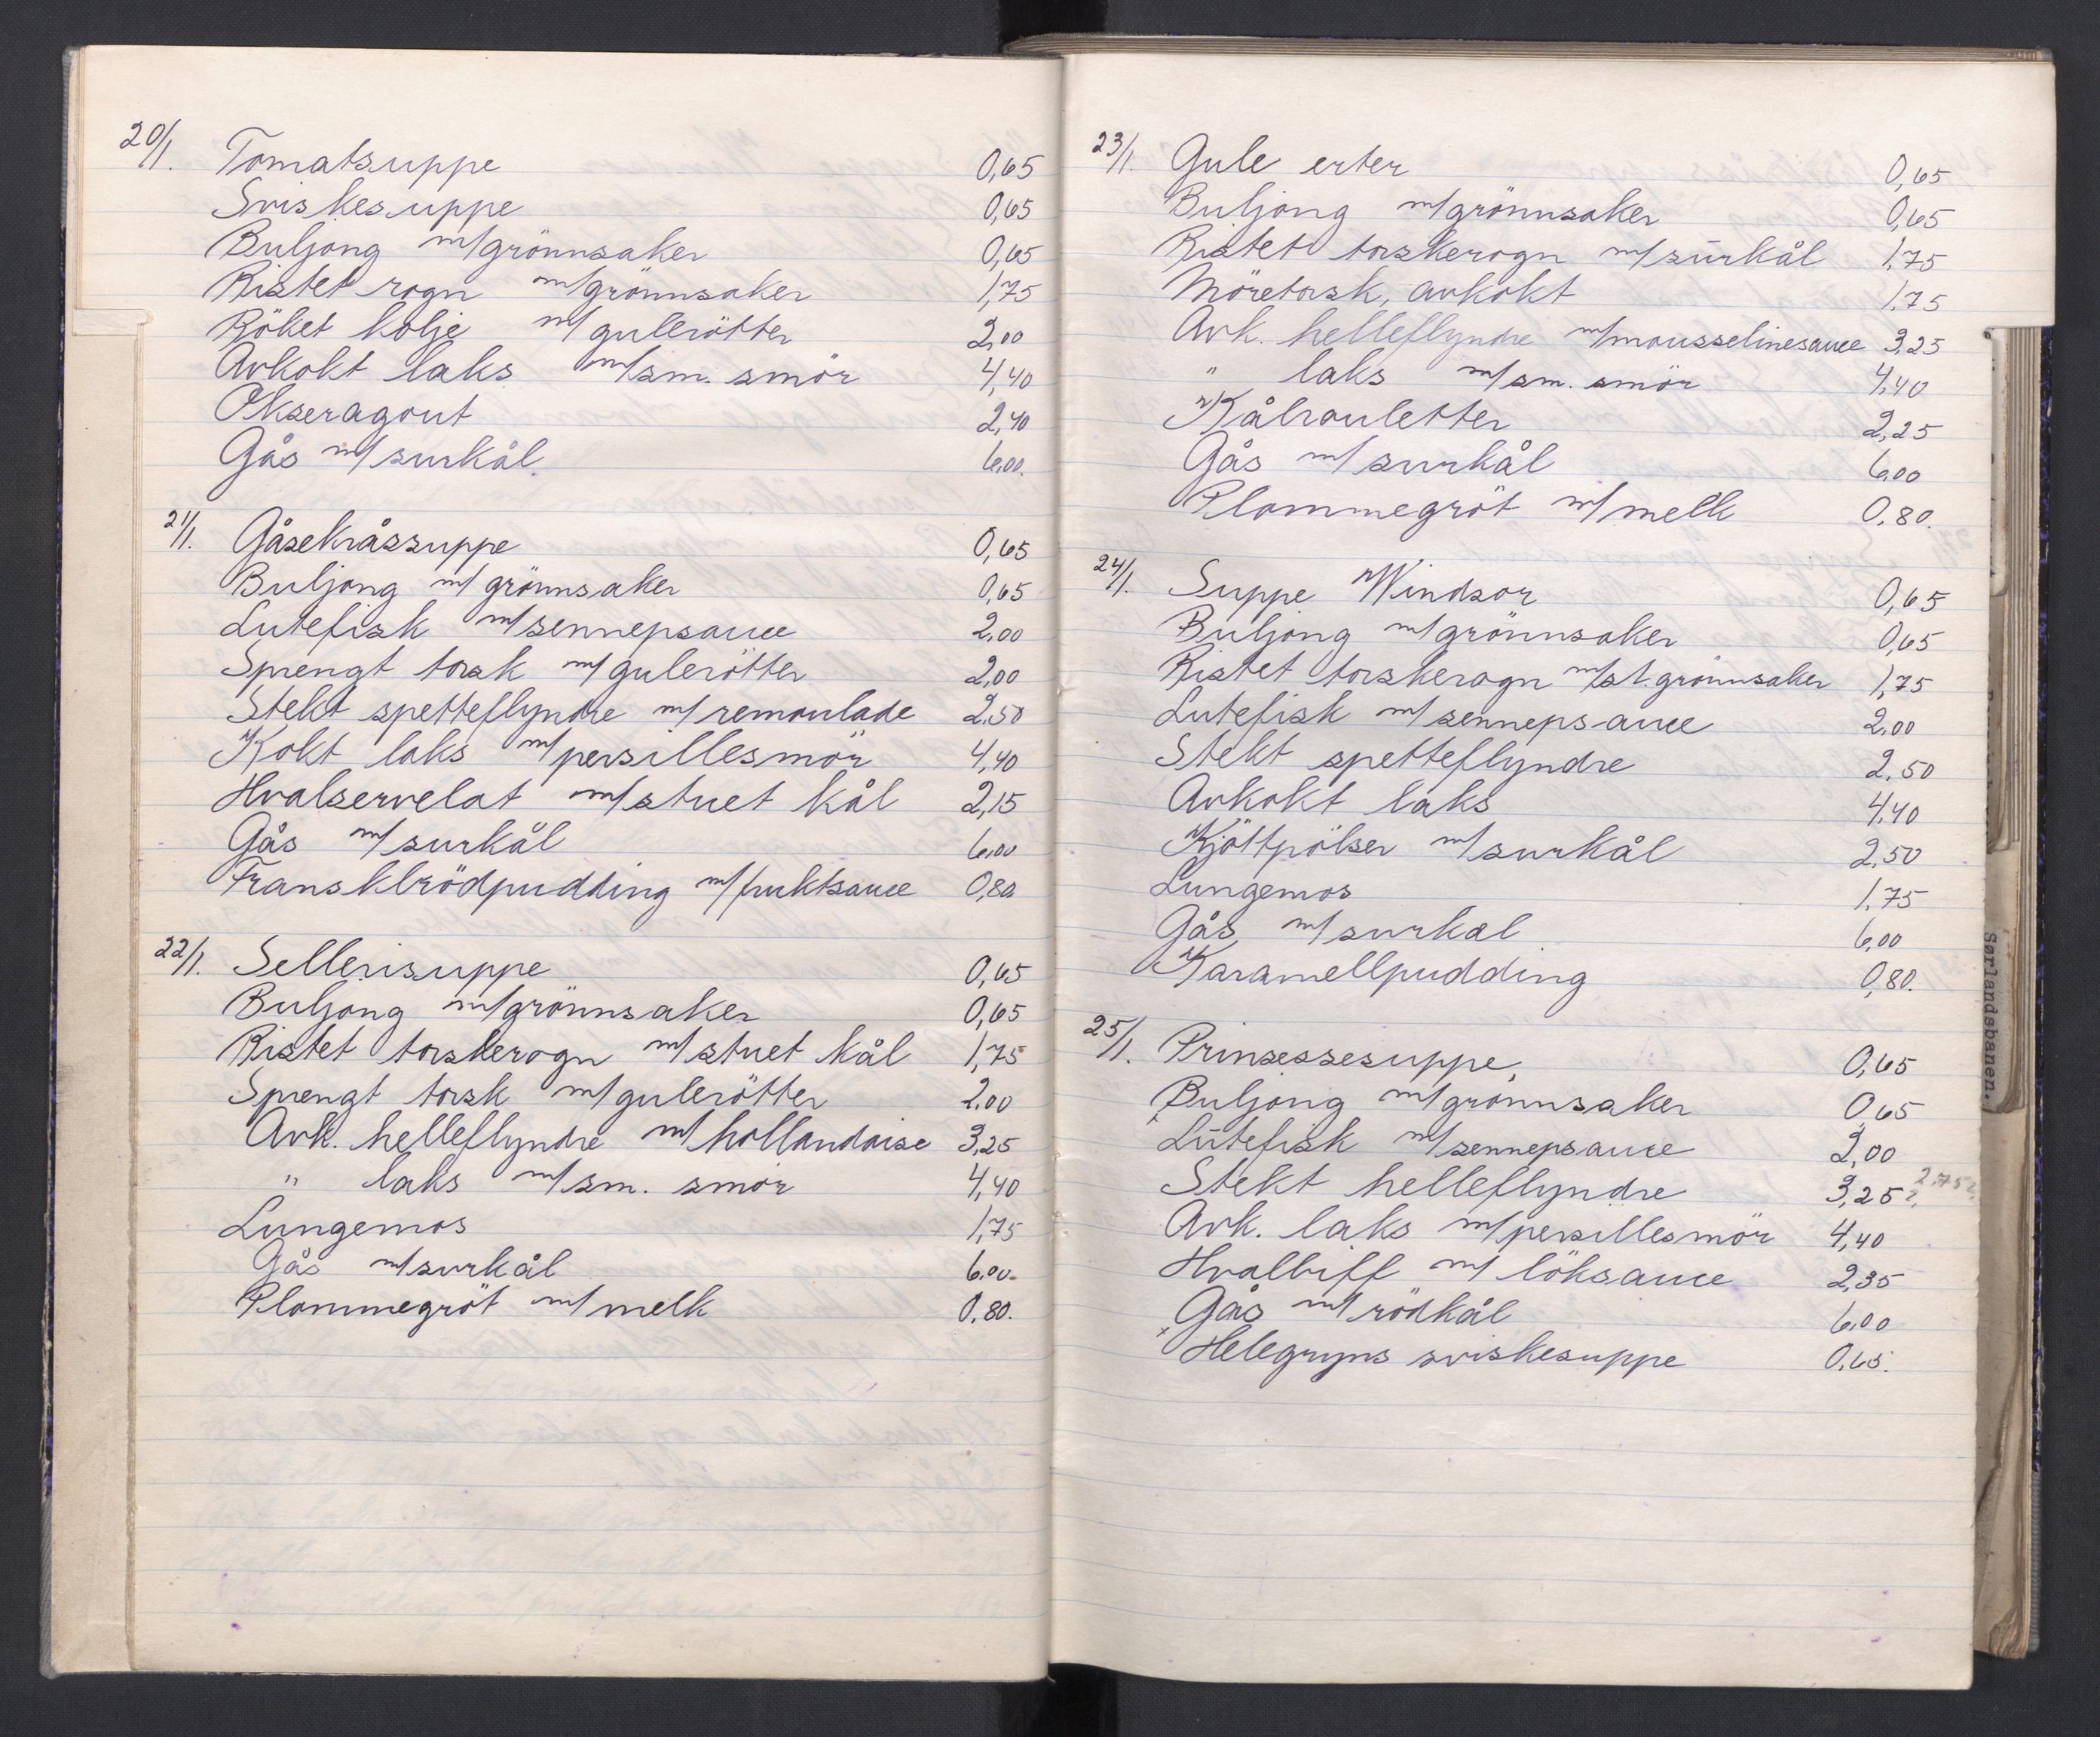 20/1. Tomatsuppe 0,65
Sviskesuppe 0,65
Buljong m/grönnsaker 0,65
Ristet rogn m/grönnsaker 1,75
Röket kolje m/gulerötter 2,00
Avkokt laks m/sm. smör 4,40
Okseragout 2,40
Gås m/surkål 6,00.
21/1. Gåsekråssuppe 0,65
Buljong m/grönnsaker 0,65
Lutefisk m/sennepsauce 2,00
Sprengt torsk m/gulerötter 2,00
Stekt spetteflyndre m/remoulade 2,50
Kokt laks m/persillesmör 4,40
Hvalservelat m/stuet kål 2,15
Gås m/surkål 6,00
Franskbrödpudding m/fruktsauce 0,80
22/1. Sellerisuppe 0,65
Buljong m/grönnsaker 0,65
Ristet torskerogn m/stuet kål 1,75
Sprengt torsk m/gulerötter 2.00
Avk. helleflyndre m/hollandaise 3,25
" laks m/sm. smör 4,40
Lungemos 1,75
Gås m/surkål 6,00.
Plommegröt m/melk 0,80.
23/1. Gule erter 0,65
Buljong m/grönnsaker 0,65
Ristet torskerogn m/surkål 1,75
Möretorsk, avkokt 1.75
Avk. helleflyndre m/mousselinesauce 3,25
" laks m/sm. smör 4,40
Kålrouletter 2,25
Gås m/surkål 6,00
Plommegröt m/melk 0,80.
24/1. Suppe Windsor 0,65
Buljong m/grönnsaker 0,65
Ristet torskerogn m/st. grönnsaker 1,75
Lutefisk m/sennepsauce 2,00
Stekt spetteflyndre 2,50
Avkokt laks 4,40
Kjöttpölser m/surkål 2,50
Lungemos 1,75
Gås m/surkål 6,00
Karamellpudding 0,80.
25/1. Prinsessesuppe, 0,65
Buljong m/grönnsaker 0,65
x Lutefisk m/sennepsauce 2,00
Stekt helleflyndre 3,25 ? 2.75?
Avk. laks m/persillesmör 4,40
Hvalbiff m/löksauce 2,35
Gås m/rödkål 6,00
x Helegryns sviskesuppe 0,65.
Sørlandsbanen.